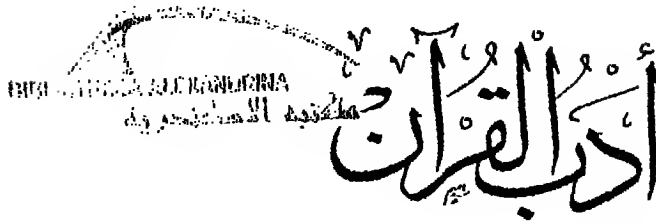 BIBLIOTHECA ALEXANDRINA
مكتبة الاسكندرية
أدب القرآن